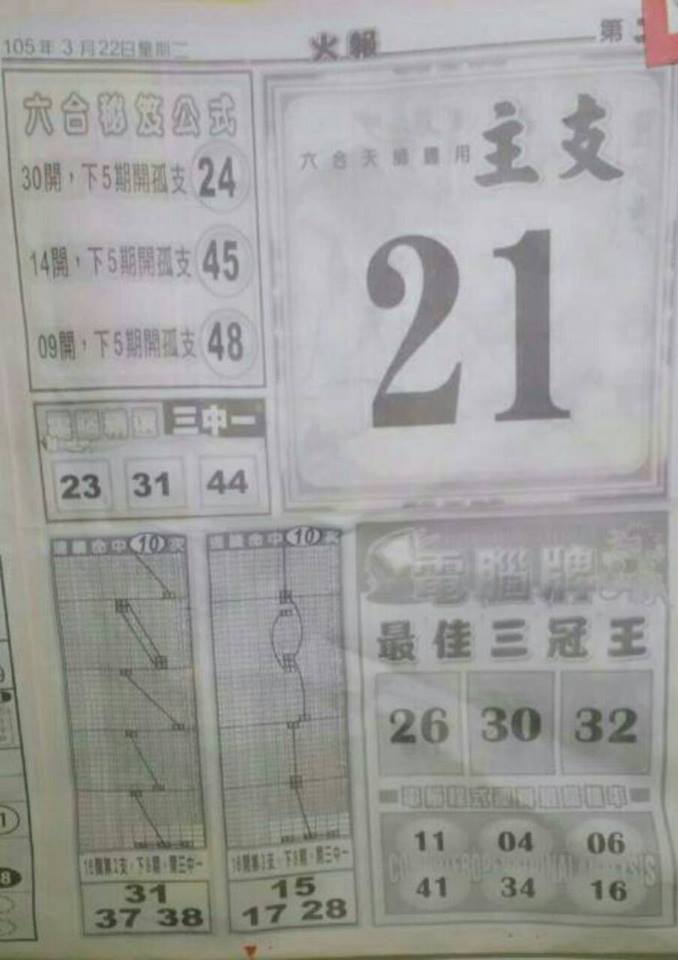 105年3月22日星期二
火報
第
六合秘笈公式
30開，下5期開孤支 24
14開，下5期開孤支 45
09開，下5期開孤支 48
三中一
23 31 44
六合天 用 主支
21
連續命中10次
31
37 38
連續命中10次
15
17 28
電腦牌
最佳三冠王
26 30 32
11 04 06
41 34 16